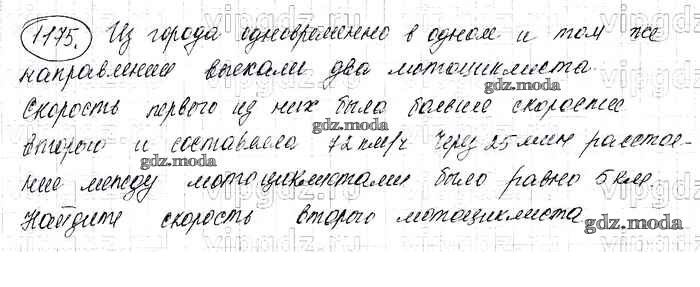 1175. Из города одновременно в одном и том же
направлении выехали два мотоциклиста.
Скорость первого из них была больше скорости
второго и составляла 72 км/ч. Через 25 мин расстоя-
ние между мотоциклистами было равно 5 км.
Найдите скорость второго мотоциклиста
gdz.moda
gdz.moda
gdz.moda
gdz.moda